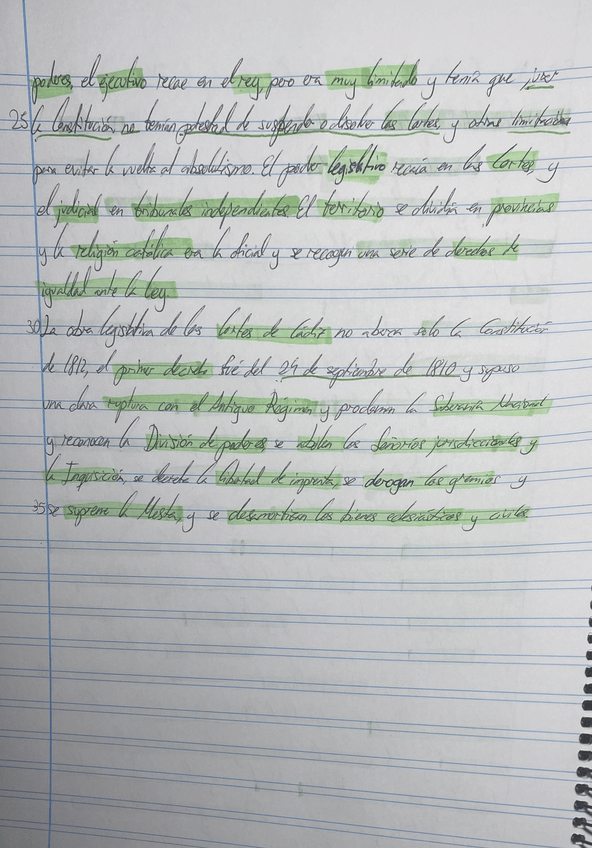 poderes, el ejecutivo recae en el rey, pero era muy limitado y tenía que jurar
25 la Constitución, no tenían potestad de suspender o disolver las Cortes, y otras limitaciones
para evitar la vuelta al absolutismo. El poder legislativo recaía en las Cortes, y
el judicial en tribunales independientes. El territorio se dividía en provincias
y la religión católica era la oficial y se recogen una serie de derechos de
igualdad ante la ley.
30 La obra legislativa de las Cortes de Cádiz no abarca solo la Constitución
de 1812, el primer decreto fue del 24 de septiembre de 1810 y supuso
una clara ruptura con el Antiguo Régimen y proclaman la Soberanía Nacional
y reconocen la División de poderes, se abolen los Señoríos jurisdiccionales y
la Inquisición, se decreta la libertad de imprenta, se derogan los gremios y
35 se suprime la Mesta, y se desamortizan los bienes eclesiásticos y civiles